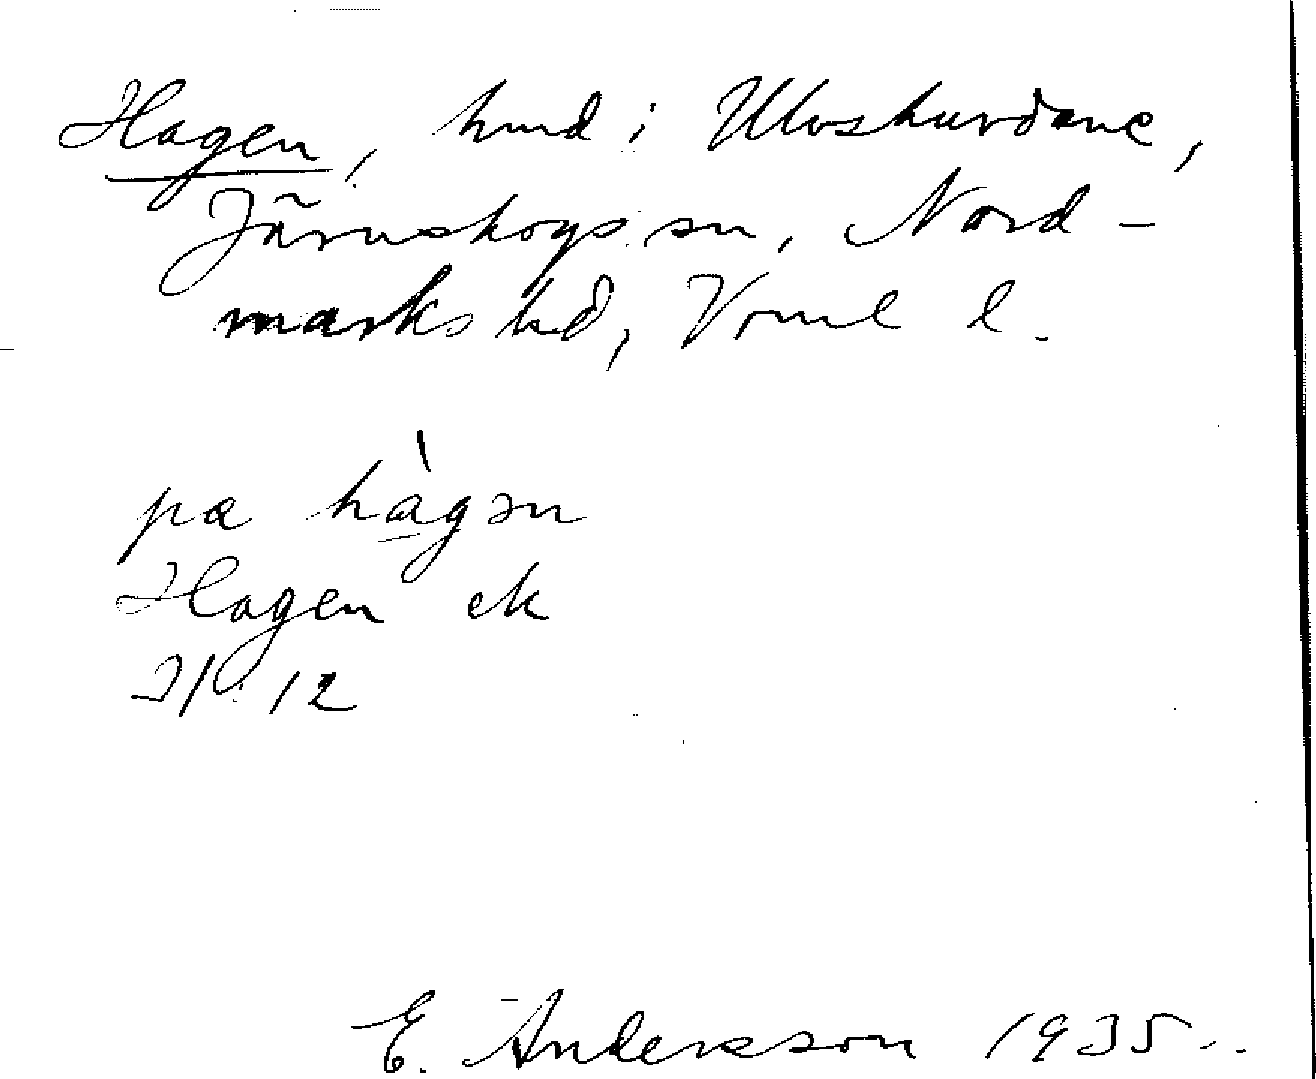 Hagen, hmd i Ulvskurdane,
Järnskogs sn, Nord-
marks hd, Vrml l.
pa hàgən
Hagen ek
21/12
E. Andersson 1935